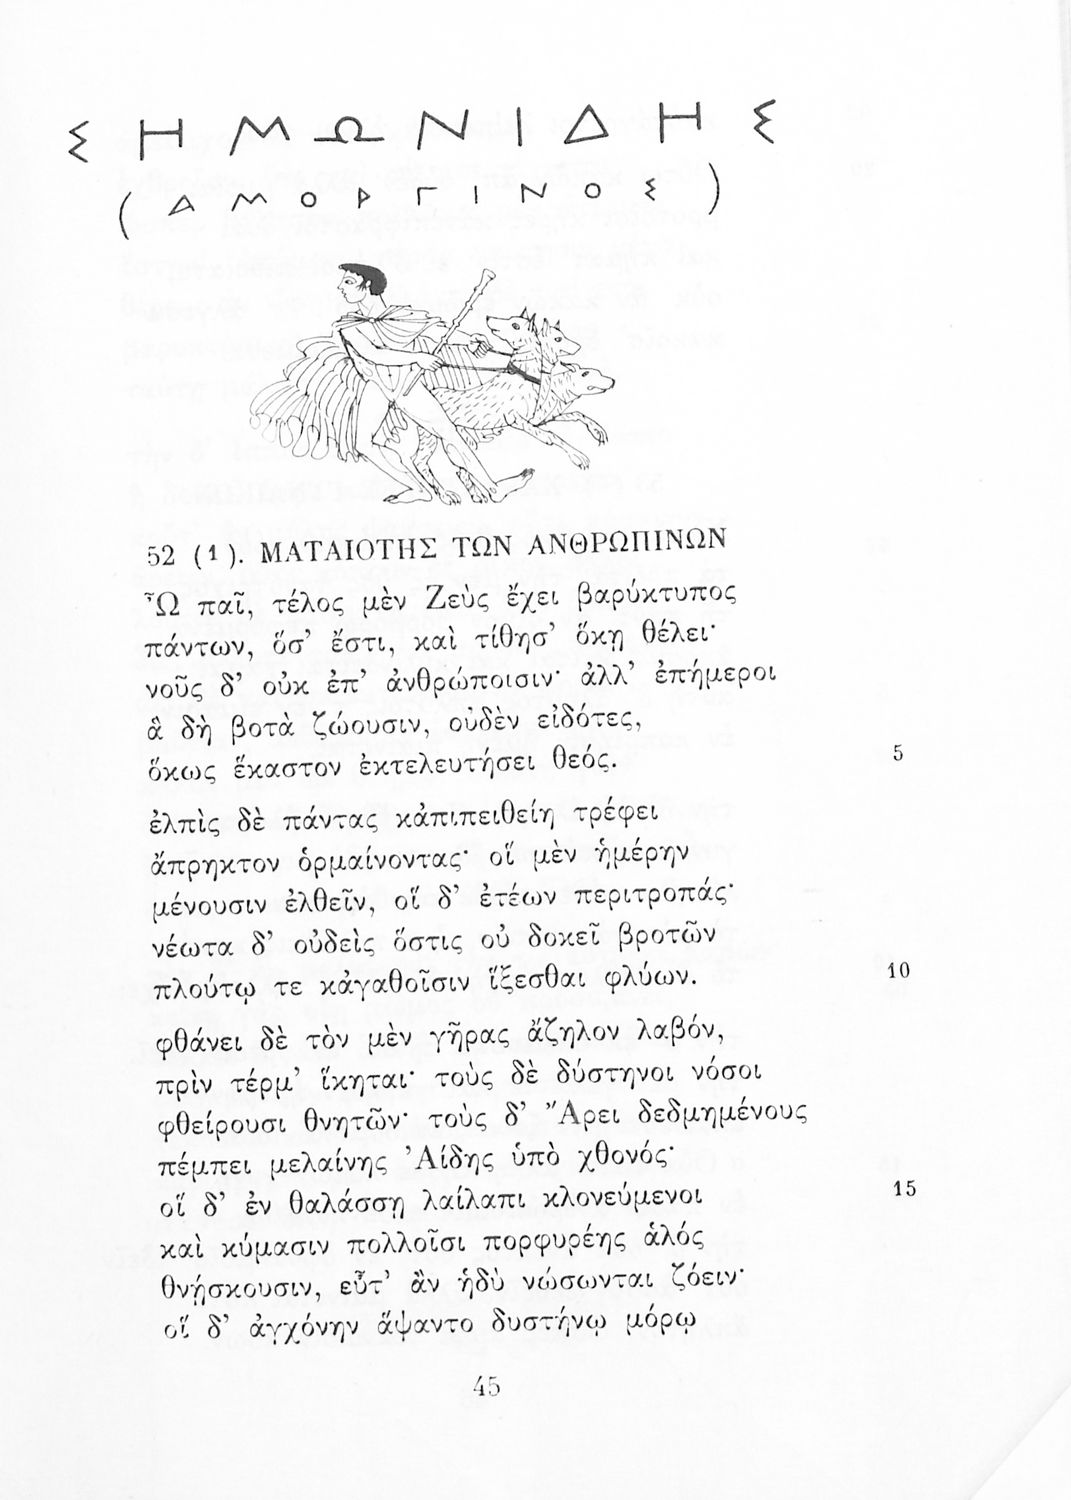 ΣΗΜΩΝΙΔΗΣ
(ΑΜΟΡΓΙΝΟΣ)
52 (1). ΜΑΤΑΙΟΤΗΣ ΤΩΝ ΑΝΘΡΩΠΙΝΩΝ
Ὦ παῖ, τέλος μὲν Ζεὺς ἔχει βαρύκτυπος
πάντων, ὅσ’ ἔστι, καὶ τίθησ’ ὅκῃ θέλει·
νοῦς δ’ οὐκ ἐπ’ ἀνθρώποισιν· ἀλλ’ ἐπήμεροι
ἃ δὴ βοτὰ ζώουσιν, οὐδὲν εἰδότες,
ὅκως ἕκαστον ἐκτελευτήσει θεός. 5
ἐλπὶς δὲ πάντας κἀπιπειθείη τρέφει
ἄπρηκτον ὁρμαίνοντας· οἵ μὲν ἡμέρην
μένουσιν ἐλθεῖν, οἵ δ’ ἐτέων περιτροπάς·
νέωτα δ’ οὐδεὶς ὅστις οὐ δοκεῖ βροτῶν
πλούτῳ τε κἀγαθοῖσιν ἵξεσθαι φλύων. 10
φθάνει δὲ τὸν μὲν γῆρας ἄζηλον λαβόν,
πρὶν τέρμ’ ἵκηται· τοὺς δὲ δύστηνοι νόσοι
φθείρουσι θνητῶν· τοὺς δ’ Ἄρει δεδμημένους
πέμπει μελαίνης Ἀίδης ὑπὸ χθονός·
οἵ δ’ ἐν θαλάσσῃ λαίλαπι κλονεύμενοι 15
καὶ κύμασιν πολλοῖσι πορφυρέης ἁλός
θνῄσκουσιν, εὖτ’ ἂν ἡδὺ νώσωνται ζόειν·
οἵ δ’ ἀγχόνην ἅψαντο δυστήνῳ μόρῳ
45